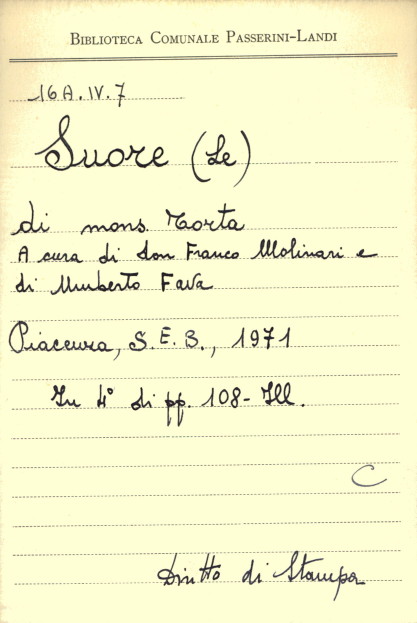 BIBLIOTECA COMUNALE PASSERINI-LANDI
16A.IV.7
Suore (Le)
di mons. Torta
A cura di don Franco Molinari e
di Umberto Fava
Piacenza, S.E.B., 1971
In 4° di pp. 108 - Ill.
C
Diritto di Stampa